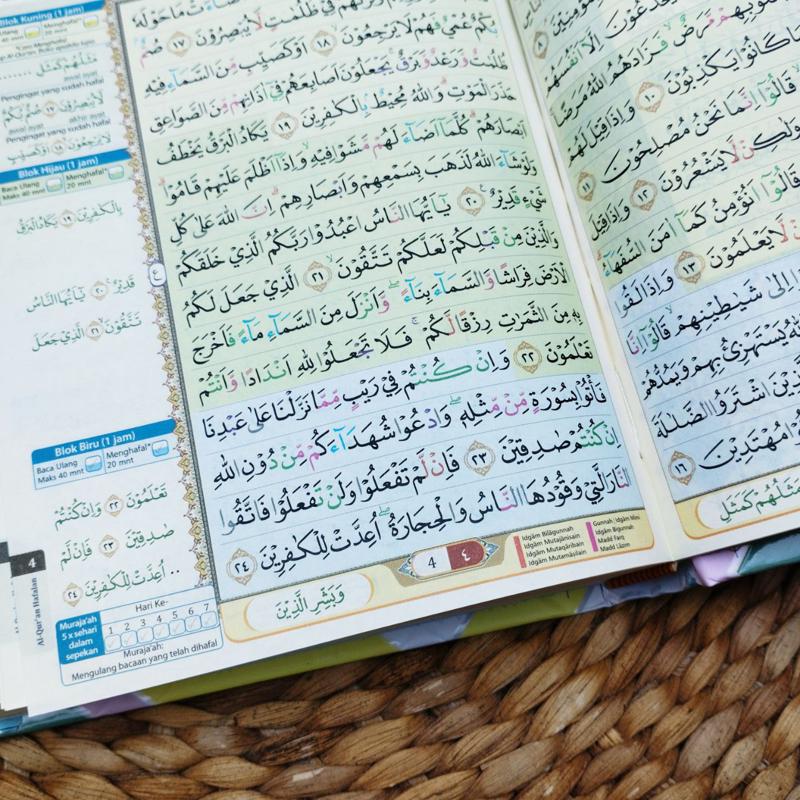 مُّؤْمِنِيْنَ
٨
يَخْدَعُوْنَ اِلَّآ اَنْفُسَهُمْ
قُلُوْبِهِمْ مَّرَضٌ فَزَادَهُمُ اللّٰهُ مَرَضًا
كَانُوْا يَكْذِبُوْنَ ١٠ وَاِذَا قِيْلَ لَهُمْ
قَالُوْٓا اِنَّمَا نَحْنُ مُصْلِحُوْنَ ١١
وَلٰكِنْ لَّا يَشْعُرُوْنَ ١٢ وَاِذَا قِيْلَ
قَالُوْٓا اَنُؤْمِنُ كَمَآ اٰمَنَ السُّفَهَاۤءُ
لَّا يَعْلَمُوْنَ ١٣ وَاِذَا لَقُوا
اِلٰى شَيٰطِيْنِهِمْ قَالُوْٓا اِنَّا
يَسْتَهْزِئُ بِهِمْ وَيَمُدُّهُمْ
اشْتَرَوُا الضَّلٰلَةَ
مُهْتَدِيْنَ ١٦
مَثَلُهُمْ كَمَثَلِ
مَا حَوْلَهٗ
فِيْ ظُلُمٰتٍ لَّا يُبْصِرُوْنَ ١٧ صُمٌّ
بُكْمٌ عُمْيٌ فَهُمْ لَا يَرْجِعُوْنَ ١٨ اَوْ كَصَيِّبٍ مِّنَ السَّمَاۤءِ فِيْهِ
ظُلُمٰتٌ وَّرَعْدٌ وَّبَرْقٌ يَجْعَلُوْنَ اَصَابِعَهُمْ فِيْٓ اٰذَانِهِمْ مِّنَ الصَّوَاعِقِ
حَذَرَ الْمَوْتِ وَاللّٰهُ مُحِيْطٌ بِالْكٰفِرِيْنَ ١٩ يَكَادُ الْبَرْقُ يَخْطَفُ
اَبْصَارَهُمْ كُلَّمَآ اَضَاۤءَ لَهُمْ مَّشَوْا فِيْهِ وَاِذَآ اَظْلَمَ عَلَيْهِمْ قَامُوْا
وَلَوْ شَاۤءَ اللّٰهُ لَذَهَبَ بِسَمْعِهِمْ وَاَبْصَارِهِمْ اِنَّ اللّٰهَ عَلٰى كُلِّ
شَيْءٍ قَدِيْرٌ ٢٠ يٰٓاَيُّهَا النَّاسُ اعْبُدُوْا رَبَّكُمُ الَّذِيْ خَلَقَكُمْ
وَالَّذِيْنَ مِنْ قَبْلِكُمْ لَعَلَّكُمْ تَتَّقُوْنَ ٢١ الَّذِيْ جَعَلَ لَكُمُ
الْاَرْضَ فِرَاشًا وَّالسَّمَاۤءَ بِنَاۤءً وَّاَنْزَلَ مِنَ السَّمَاۤءِ مَاۤءً فَاَخْرَجَ
بِهٖ مِنَ الثَّمَرٰتِ رِزْقًا لَّكُمْ فَلَا تَجْعَلُوْا لِلّٰهِ اَنْدَادًا وَّاَنْتُمْ
تَعْلَمُوْنَ ٢٢ وَاِنْ كُنْتُمْ فِيْ رَيْبٍ مِّمَّا نَزَّلْنَا عَلٰى عَبْدِنَا
فَأْتُوْا بِسُوْرَةٍ مِّنْ مِّثْلِهٖ وَادْعُوْا شُهَدَاۤءَكُمْ مِّنْ دُوْنِ اللّٰهِ
اِنْ كُنْتُمْ صٰدِقِيْنَ ٢٣ فَاِنْ لَّمْ تَفْعَلُوْا وَلَنْ تَفْعَلُوْا فَاتَّقُوا
النَّارَ الَّتِيْ وَقُوْدُهَا النَّاسُ وَالْحِجَارَةُ اُعِدَّتْ لِلْكٰفِرِيْنَ ٢٤
وَبَشِّرِ الَّذِيْنَ
4 ٤
Idgām Bilāgunnah
Idgām Mutajānisain
Idgām Mutaqāribain
Idgām Mutamāṡilain
Gunnah | Idgām Mimi
Idgām Bigunnah
Madd Farq
Madd Lāzim
Blok Kuning (1 jam)
Menghafal*
20 mnt
مَثَلُهُمْ كَمَثَلِ
awal ayat
Pengingat yang sudah hafal
لَا يُبْصِرُوْنَ ١٧ صُمٌّ بُكْمٌ
awal ayat akhir ayat
Pengingat yang sudah hafal
لَا يَرْجِعُوْنَ ١٨ اَوْ كَصَيِّبٍ
Blok Hijau (1 jam)
Baca Ulang
Maks 40 mnt
Menghafal*
20 mnt
بِالْكٰفِرِيْنَ ١٩ يَكَادُ الْبَرْقُ
قَدِيْرٌ ٢٠ يٰٓاَيُّهَا النَّاسُ
تَتَّقُوْنَ ٢١ الَّذِيْ جَعَلَ
ع
Blok Biru (1 jam)
Baca Ulang
Maks 40 mnt
Menghafal*
20 mnt
تَعْلَمُوْنَ ٢٢ وَاِنْ كُنْتُمْ
صٰدِقِيْنَ ٢٣ فَاِنْ لَّمْ
.. اُعِدَّتْ لِلْكٰفِرِيْنَ ٢٤
4
Al-Qur'an Hafalan
Muraja'ah
5 x sehari
dalam
sepekan
Hari Ke-
1 2 3 4 5 6 7
Muraja'ah:
Mengulang bacaan yang telah dihafal